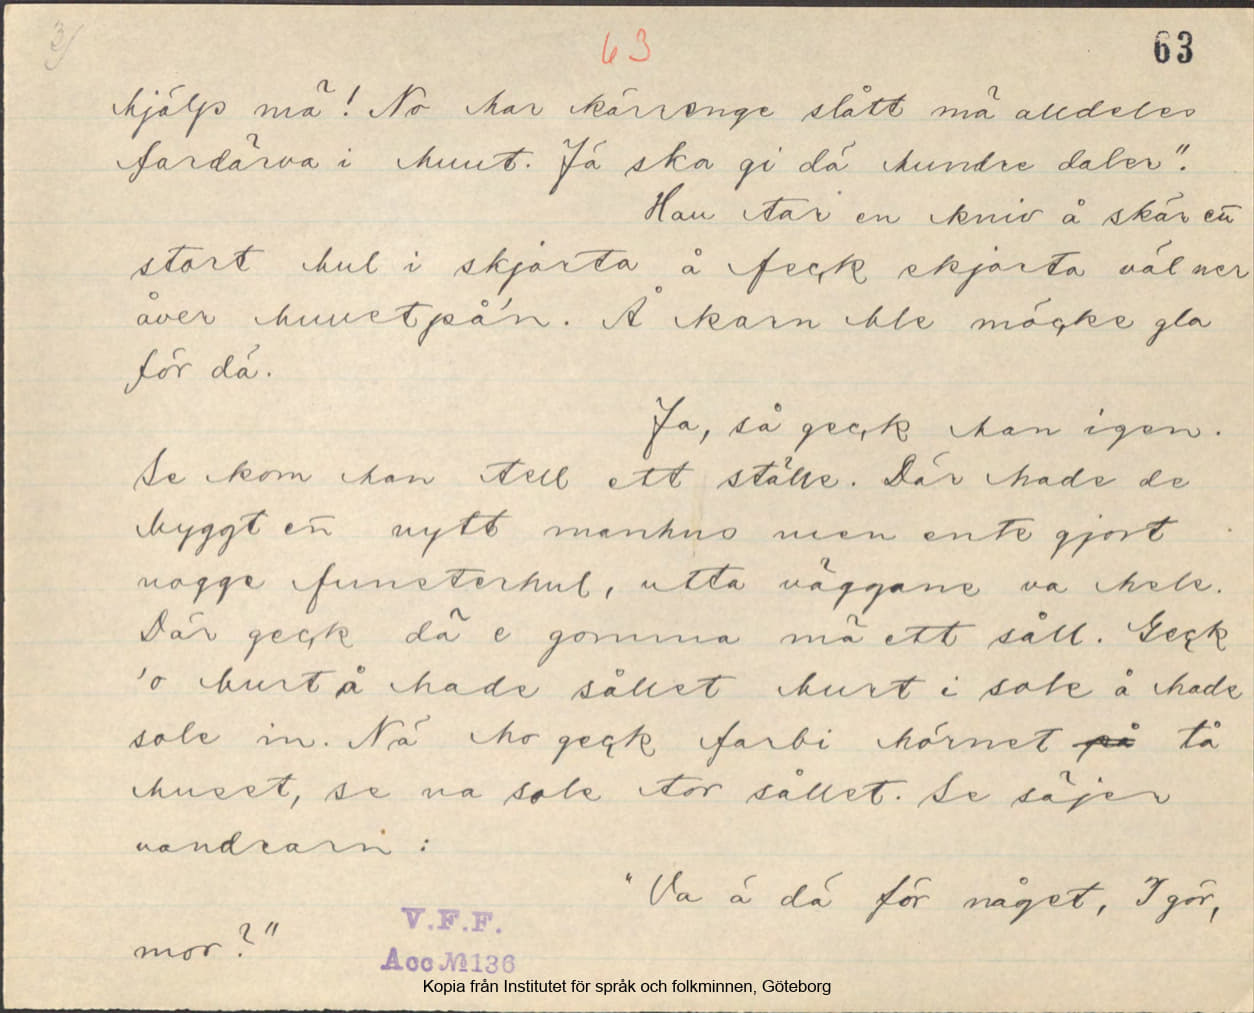 3)
63
63
hjälp mä! No har kärrenge slått mä alldeles
fardärva i huut. Jä ska gi dä hundre daler".
Han tar en kniv å skär eñ
stort hul i skjorta å feçk skjorta väl ner
åver huuet på'n. Å karn ble möçke gla
för dä.
Ja, så geçk han igen.
Se kom han tell ett ställe. Där hade de
byggt eñ nytt manhus men ente gjort
nogge funsterhul, utta väggane va hele.
Där geçk dä e gomma mä ett såll. Geçk
'o burt å hade sållet burt i sole å hade
sole in. Nä ho geçk farbi hörnet på tå
huset, se va sole tor sållet. Se säjer
vandrarn:
"Va ä dä för något, I gör,
mor?"
V.F.F.
Acc № 136
Kopia från Institutet för språk och folkminnen, Göteborg